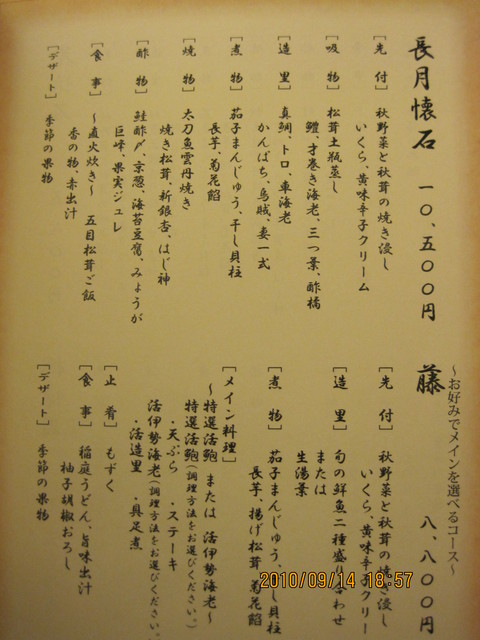 長月懐石 一〇、五〇〇円
［先 付］ 秋野菜と秋茸の焼き浸し
いくら、黄味辛子クリーム
［吸 物］ 松茸土瓶蒸し
鱧、才巻き海老、三つ葉、酢橘
［造 里］ 真鯛、トロ、車海老
かんぱち、烏賊、妻一式
［煮 物］ 茄子まんじゅう、干し貝柱
長芋、菊花餡
［焼 物］ 太刀魚雲丹焼き
焼き松茸、新銀杏、はじ神
［酢 物］ 鮭酢〆、京葱、海苔豆腐、みょうが
巨峰、果実ジュレ
［食 事］ ～直火炊き～ 五目松茸ご飯
香の物、赤出汁
［デザート］ 季節の果物
～お好みでメインを選べるコース～
藤 八、八〇〇円
［先 付］ 秋野菜と秋茸の焼き浸し
いくら、黄味辛子クリー
［造 里］ 旬の鮮魚二種盛り合わせ
または
生湯葉
［煮 物］ 茄子まんじゅう、干し貝柱
長芋、揚げ松茸、菊花餡
［メイン料理］
～特選活鮑 または 活伊勢海老～
特選活鮑（調理方法をお選びください。）
・天ぷら ・ステーキ
活伊勢海老（調理方法をお選びください。）
・活造里 ・具足煮
［止 肴］ もずく
［食 事］ 稲庭うどん、旨味出汁
柚子胡椒おろし
［デザート］ 季節の果物
2010/09/14 18:57